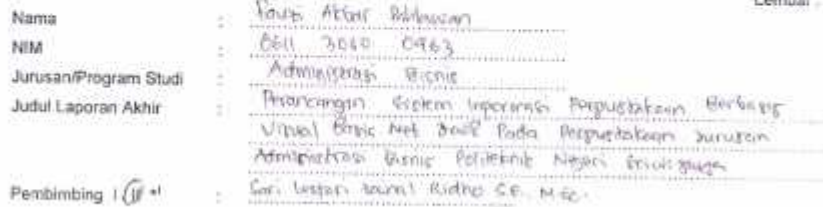 Lembar :
Nama :
NIM : 0611 3060 0963
Jurusan/Program Studi : Administrasi Bisnis
Judul Laporan Akhir : Perancangan Sistem Informasi Perpustakaan Berbasis
Visual Basic Net Pada Perpustakaan Jurusan
Administrasi Bisnis Politeknik Negeri Sriwijaya
Pembimbing I (II *) : Sari Lestari Ridho SE. M.Sc.